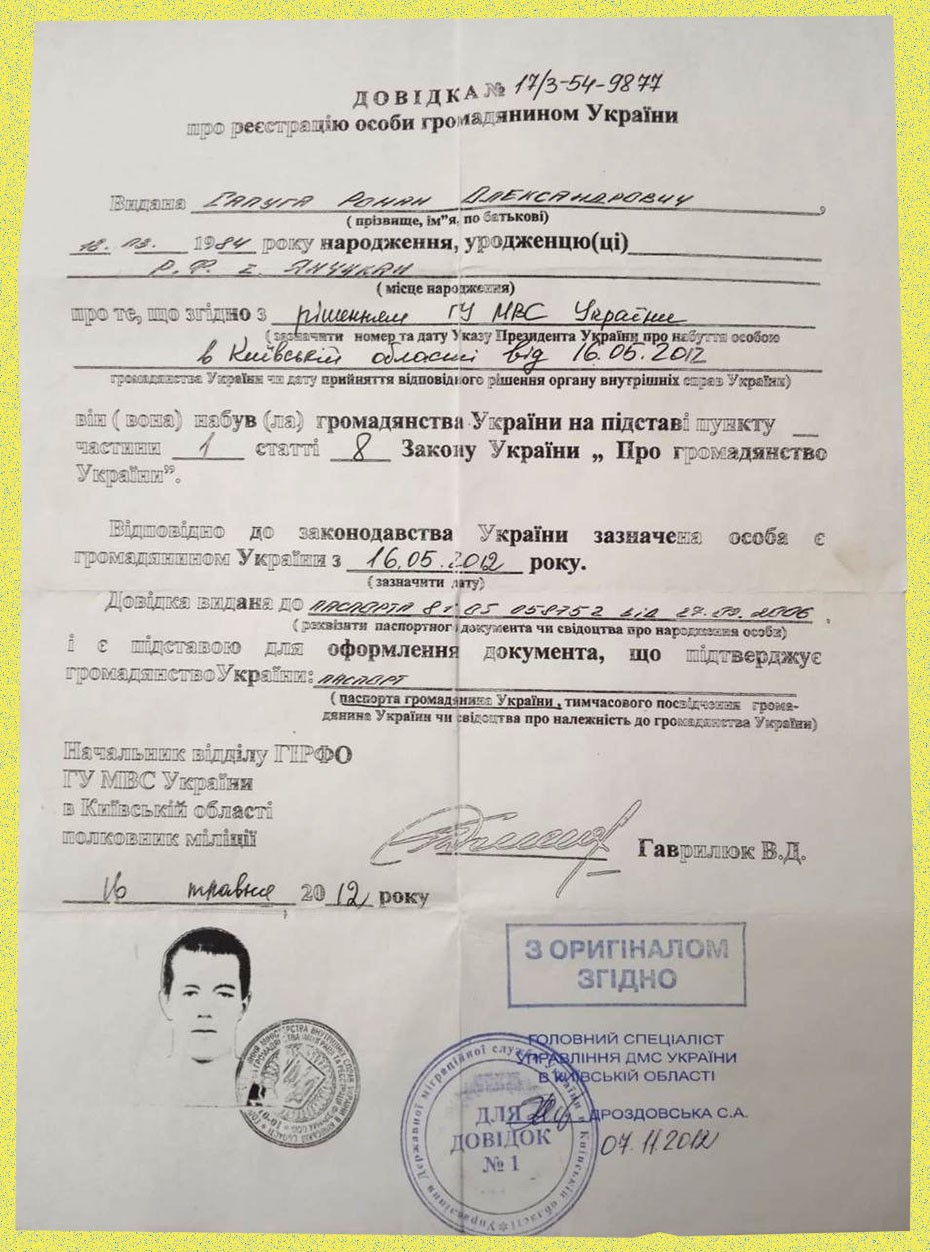 ДОВІДКА № 17/3-54-9877
про реєстрацію особи громадянином України
Видана Галуга Роман Олександрович,
( прізвище, ім"я, по батькові)
18. 03. 1984 року народження, уродженцю(ці)
Р.Ф. г.
( місце народження)
про те, що згідно з рішенням ГУ МВС України
( зазначити номер та дату Указу Президента України про набуття особою
в Київській області від 16.05.2012
громадянства України чи дату прийняття відповідного рішення органу внутрішніх справ України)
він ( вона) набув (ла) громадянства України на підставі пункту
частини 1 статті 8 Закону України „ Про громадянство
України”.
Відповідно до законодавства України зазначена особа є
громадянином України з 16.05.2012 року.
( зазначити дату)
Довідка видана до паспорта 81 05 058752 від 27.09.2006,
( реквізити паспортного документа чи свідоцтва про народження особи)
і є підставою для оформлення документа, що підтверджує
громадянство України: паспорт
( паспорта громадянина України , тимчасового посвідчення грома-
дянина України чи свідоцтва про належність до громадянства України)
Начальник відділу ГІРФО
ГУ МВС України
в Київській області
полковник міліції
Гаврилюк В.Д.
16 травня 2012 року
З ОРИГІНАЛОМ
ЗГІДНО
ГОЛОВНИЙ СПЕЦІАЛІСТ
УПРАВЛІННЯ ДМС УКРАЇНИ
В КИЇВСЬКІЙ ОБЛАСТІ
ДРОЗДОВСЬКА С.А.
07.11.2012
Управління Державної міграційної служби України в Київській області
ДЛЯ
ДОВІДОК
№ 1